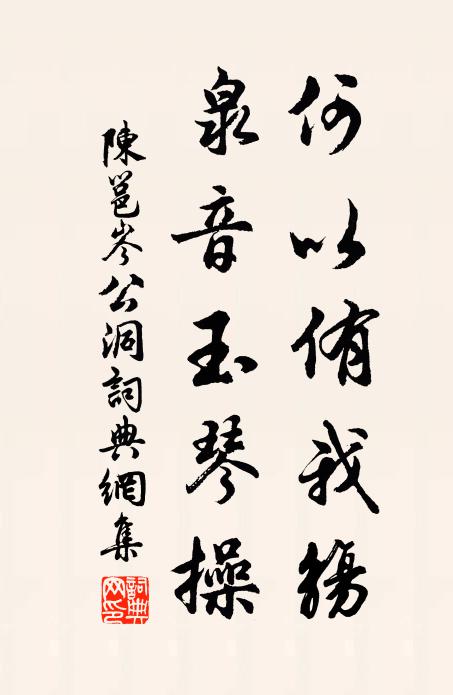 何以侑我觴
泉音玉琴操
陳邕岑公洞詞典網集
詞典網印